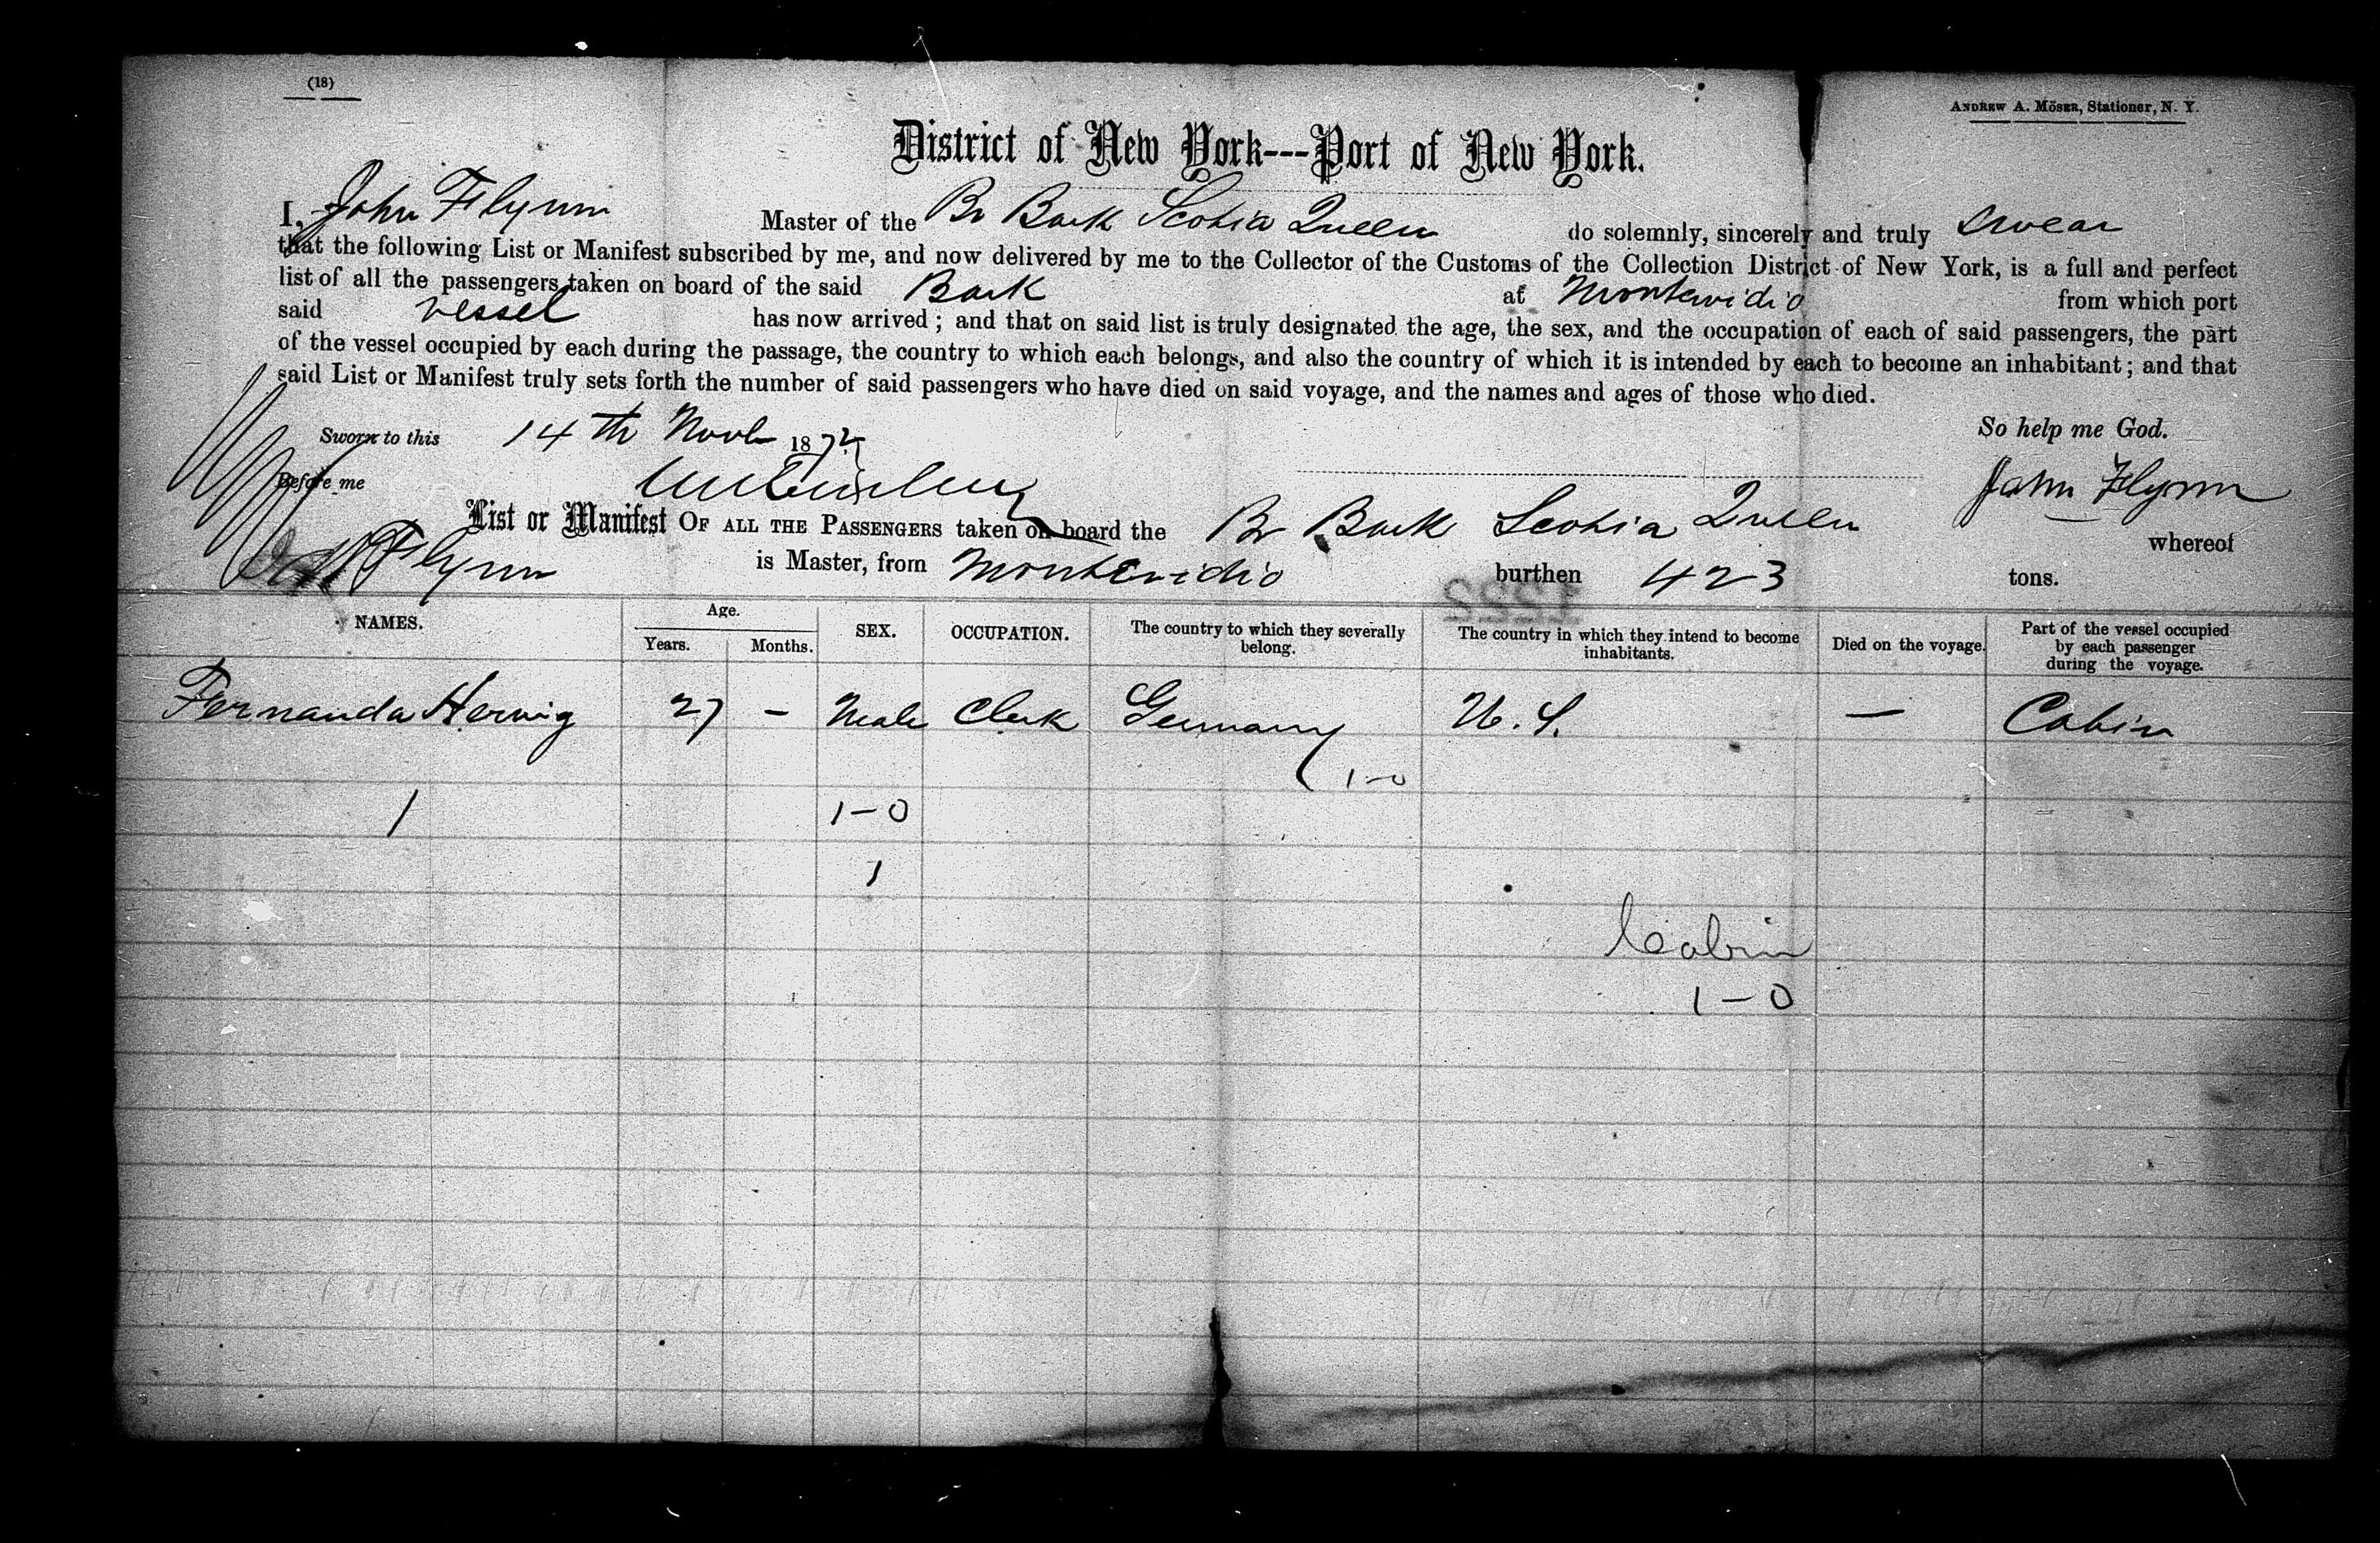 (18)
ANDREW A. MÖSER, Stationer, N. Y.
District of New York---Port of New York.
I, John Flynn Master of the Br Bark Scotia Queen do solemnly, sincerely and truly swear
that the following List or Manifest subscribed by me, and now delivered by me to the Collector of the Customs of the Collection District of New York, is a full and perfect
list of all the passengers taken on board of the said Bark at Montevidio from which port
said vessel has now arrived; and that on said list is truly designated the age, the sex, and the occupation of each of said passengers, the part
of the vessel occupied by each during the passage, the country to which each belongs, and also the country of which it is intended by each to become an inhabitant; and that
said List or Manifest truly sets forth the number of said passengers who have died on said voyage, and the names and ages of those who died.
So help me God.
Sworn to this 14th Novb 187
Before me
John Flynn
List or Manifest OF ALL THE PASSENGERS taken on board the Br Bark Scotia Queen whereof
Flynn is Master, from Montevidio burthen 423 tons.
NAMES. Age. Years. Months. SEX. OCCUPATION. The country to which they severally belong. The country in which they intend to become inhabitants. Died on the voyage. Part of the vessel occupied by each passenger during the voyage.
Fernanda Herwig 27 – Male Clerk Germany U. S. — Cabin
1–0
1 1–0
1
Cabin
1–0